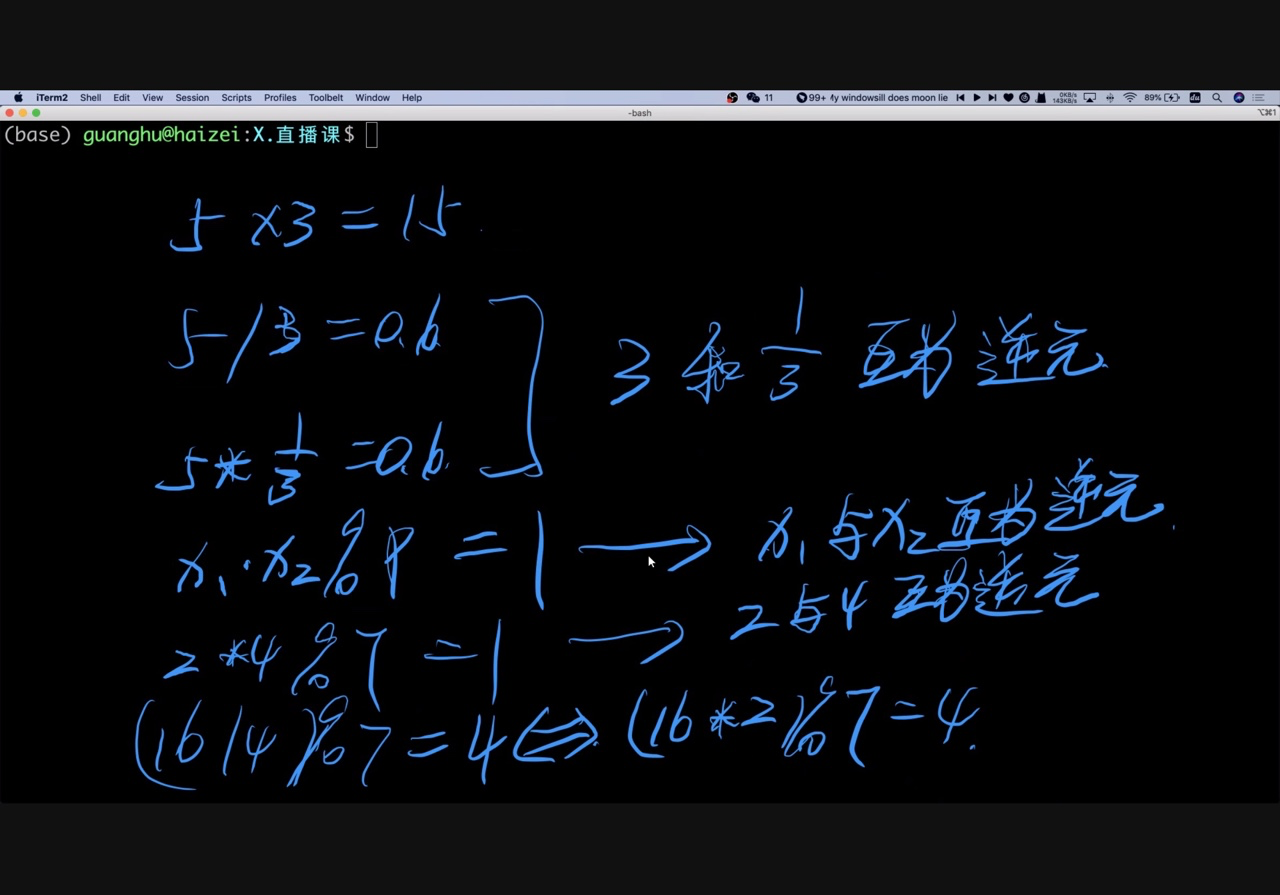 iTerm2 Shell Edit View Session Scripts Profiles Toolbelt Window Help 11 99+ My windowsill does moon lie 0KB/s 143KB/s 89%
-bash ⌥⌘1
(base) guanghu@haizei:X.直播课$
5 x3 = 15
5/3 = a.b
5* 1/3 = a.b.
3 和 1/3 互为逆元.
x₁·x₂%P = 1 → x₁与x₂互为逆元.
2*4%7 = 1 → 2与4互为逆元
(16/4)%7 = 4 ⇔ (16*2)%7 = 4.